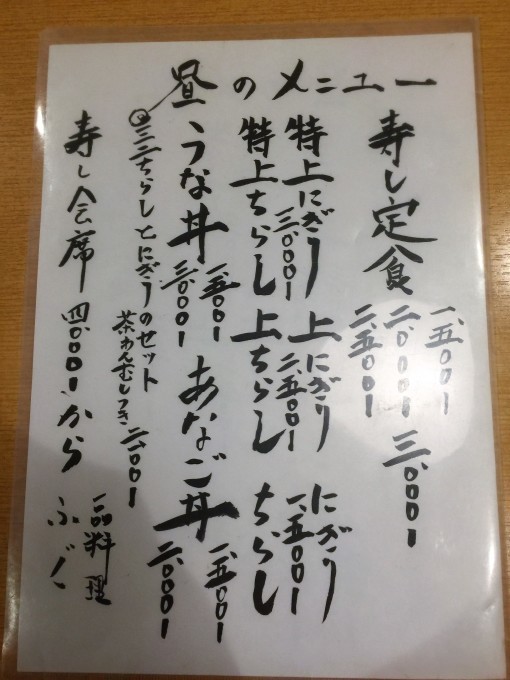 昼のメニュー
寿し定食 一、五〇〇ー 二、〇〇〇ー 二、五〇〇ー 三、〇〇〇ー
特上にぎり 上にぎり にぎり
三、〇〇〇ー 二、五〇〇ー 一、五〇〇ー
特上ちらし 上ちらし ちらし
うな丼 一、五〇〇ー 三、〇〇〇ー あなご丼 一、五〇〇ー 二、〇〇〇ー
ミニちらしとにぎりのセット
茶わんむしつき 二、〇〇〇ー
寿し会席 四、〇〇〇ーから
一品料理
ふぐ